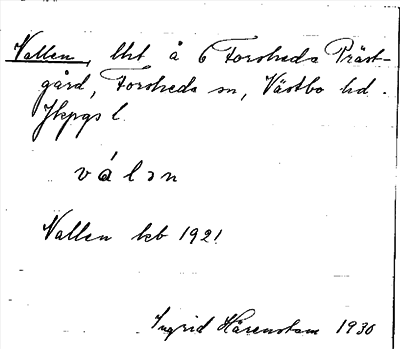 Vallen, lht å 6 Forsheda Präst-
gård, Forsheda sn, Västbo hd.
Jkpgs l.
válɘn
Vallen kb 1921
Ingrid Härenstam 1930